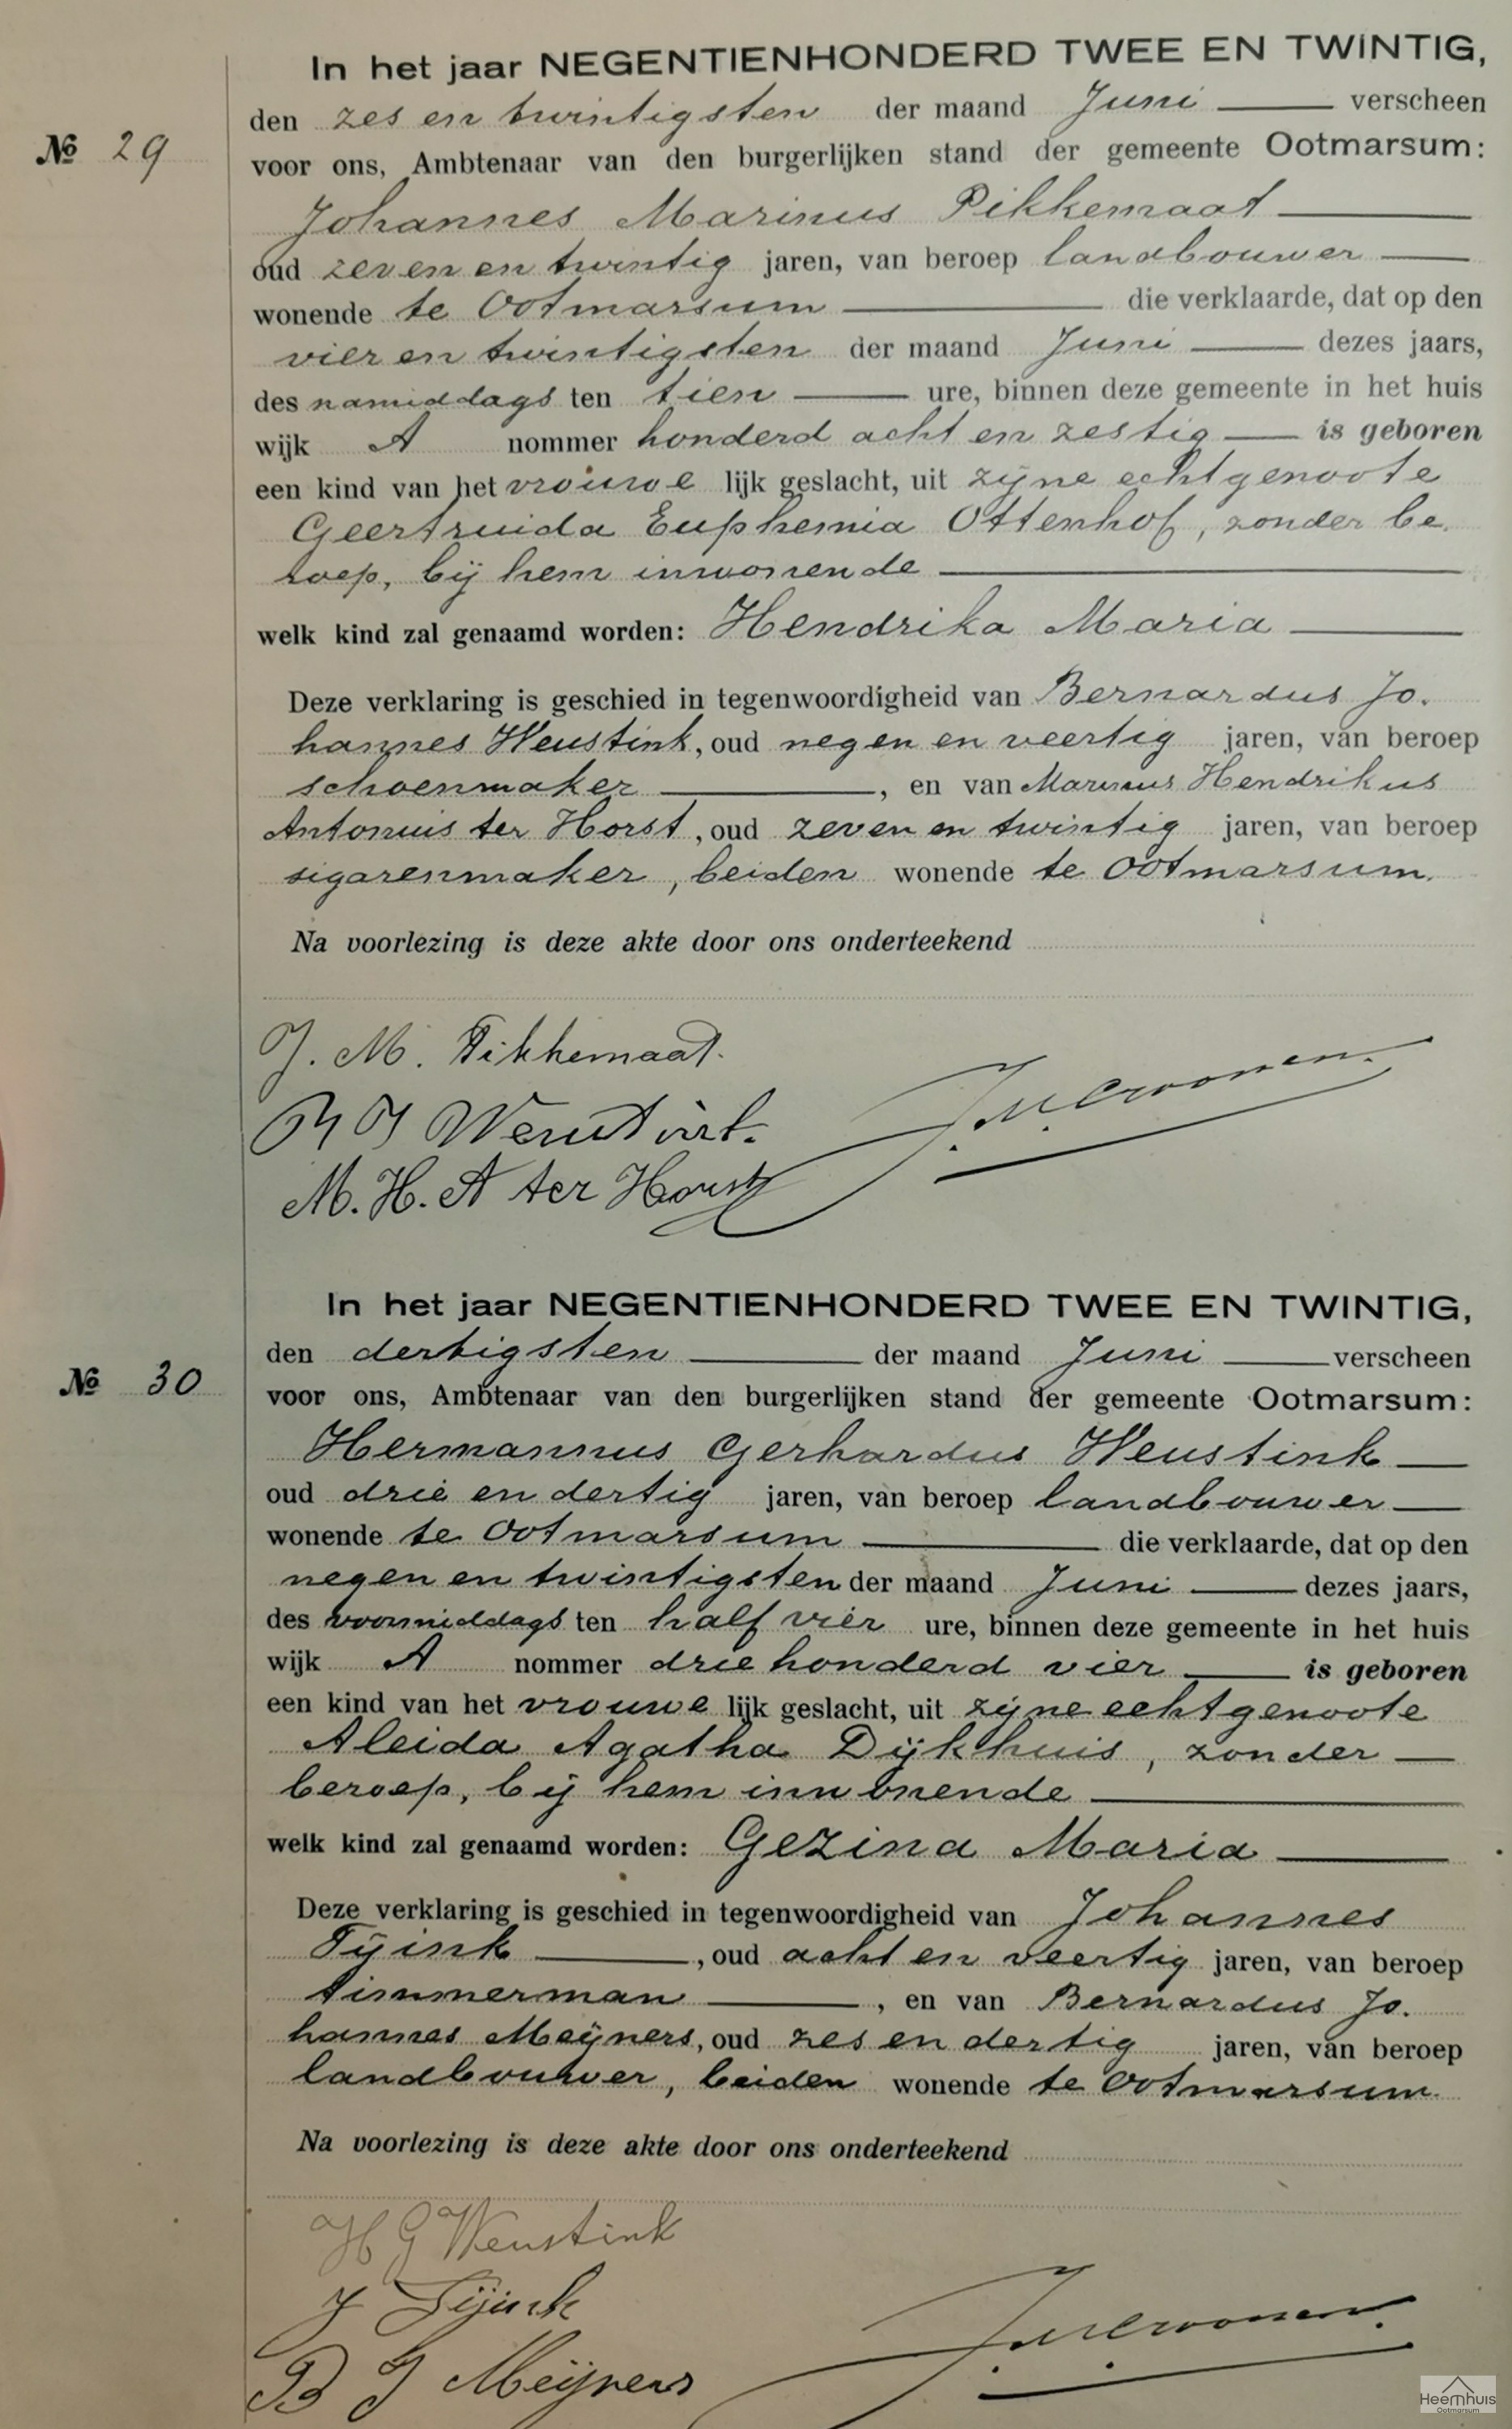 In het jaar NEGENTIENHONDERD TWEE EN TWINTIG,
den zes en twintigsten der maand Juni verscheen
No 29
voor ons, Ambtenaar van den burgerlijken stand der gemeente Ootmarsum:
Johannes Marinus Pikkemaat
oud zeven en twintig jaren, van beroep landbouwer
wonende te Ootmarsum die verklaarde, dat op den
vier en twintigsten der maand Juni dezes jaars,
des namiddags ten tien ure, binnen deze gemeente in het huis
wijk A nommer honderd acht en zestig is geboren
een kind van het vrouwe lijk geslacht, uit zijne echtgenoote
Geertruida Euphemia Ottenhof, zonder be.
roep, bij hem inwonende
welk kind zal genaamd worden: Hendrika Maria
Deze verklaring is geschied in tegenwoordigheid van Bernardus Jo.
hannes Weustink, oud negen en veertig jaren, van beroep
schoenmaker, en van Marinus Hendrikus
Antonius ter Horst, oud zeven en twintig jaren, van beroep
sigarenmaker, beiden wonende te Ootmarsum.
Na voorlezing is deze akte door ons onderteekend
J. M. Pikkemaat.
B J Weustink.
M. H. A ter Horst
In het jaar NEGENTIENHONDERD TWEE EN TWINTIG,
den dertigsten der maand Juni verscheen
No 30
voor ons, Ambtenaar van den burgerlijken stand der gemeente Ootmarsum:
Hermannus Gerhardus Weustink
oud drie en dertig jaren, van beroep landbouwer
wonende te Ootmarsum die verklaarde, dat op den
negen en twintigsten der maand Juni dezes jaars,
des voormiddags ten half vier ure, binnen deze gemeente in het huis
wijk A nommer driehonderd vier is geboren
een kind van het vrouwe lijk geslacht, uit zijne echtgenoote
Aleida Agatha Dijkhuis, zonder
beroep, bij hem inwonende
welk kind zal genaamd worden: Gezina Maria
Deze verklaring is geschied in tegenwoordigheid van Johannes
Tijink, oud acht en veertig jaren, van beroep
timmerman, en van Bernardus Jo.
hannes Meijners, oud zes en dertig jaren, van beroep
landbouwer, beiden wonende te Ootmarsum.
Na voorlezing is deze akte door ons onderteekend
H G Weustink
J Tijink
B J Meijners
Heemhuis
Ootmarsum